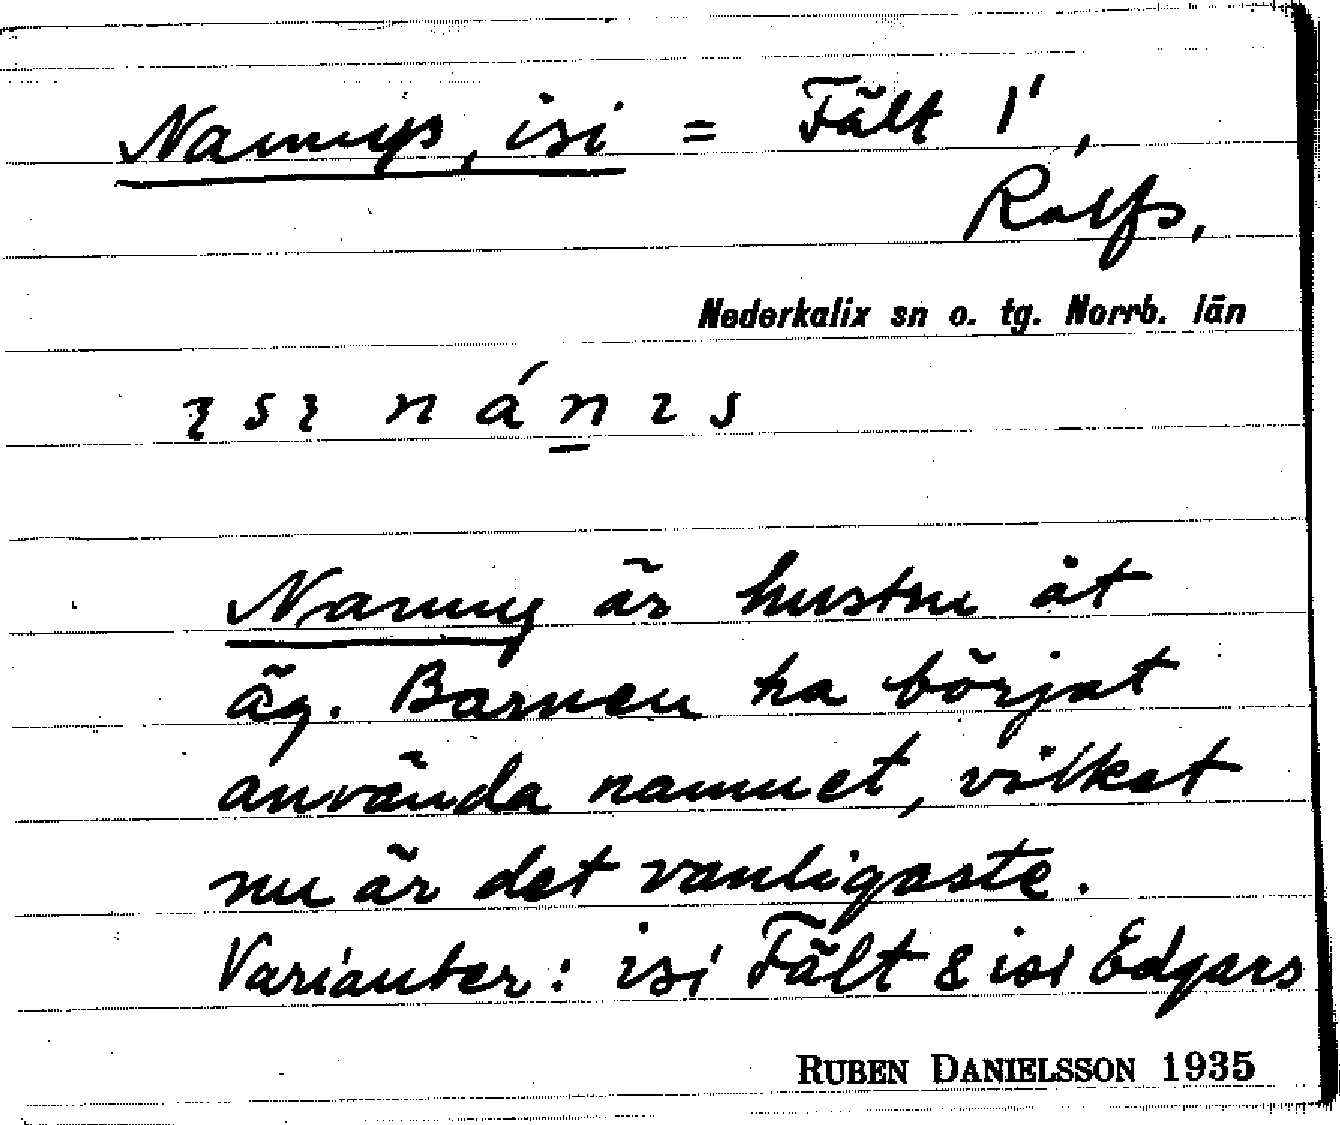 Nannys, isi = Fält 1¹,
Rolfs,
Nederkalix sn o. tg. Norrb. län
ɩsɩ nánɩs
Nanny är hustru åt
äg. Barnen ha börjat
använda namnet, vilket
nu är det vanligaste.
Varianter: isi Fält & isi Edgars
RUBEN DANIELSSON 1935